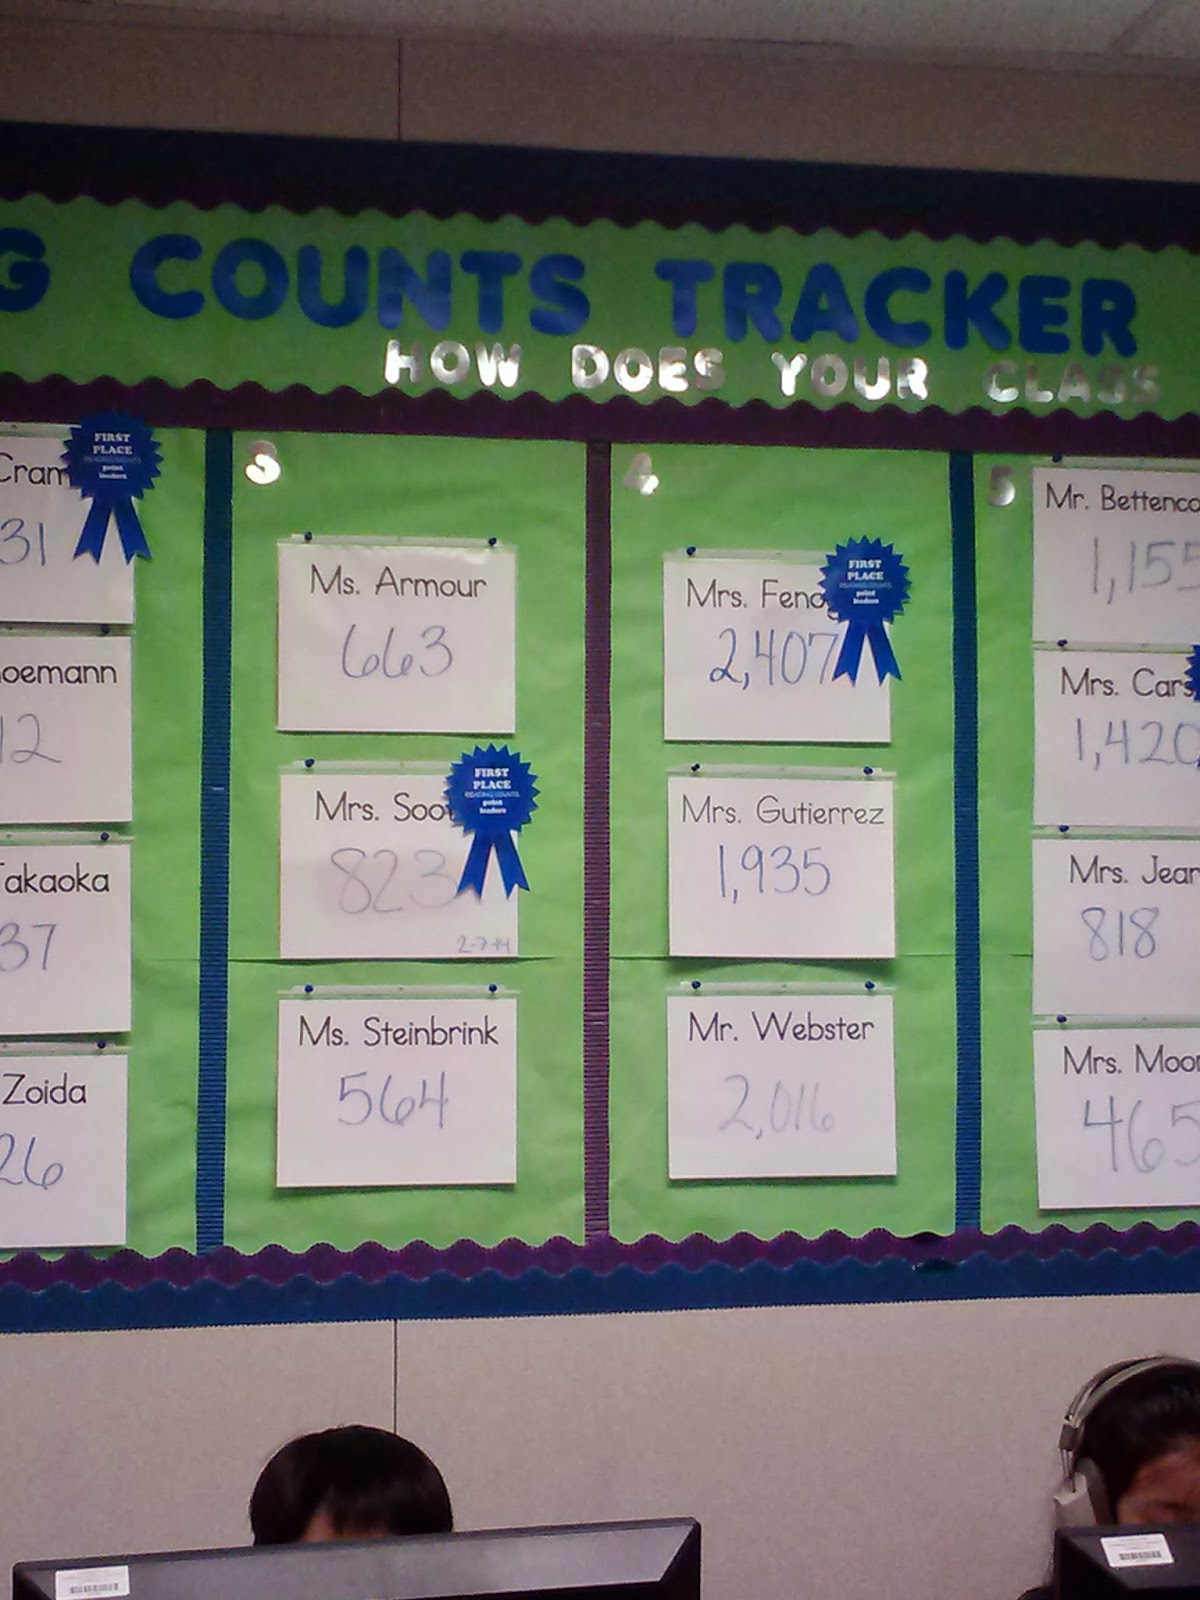 G COUNTS TRACKER
HOW DOES YOUR CLASS
Cram
31
FIRST
PLACE
READING COUNTS
point
leaders
oemann
12
akaoka
37
Zoida
26
3
Ms. Armour
663
Mrs. Soo
823
2-7-14
FIRST
PLACE
READING COUNTS
point
leaders
Ms. Steinbrink
564
4
Mrs. Feng
2,407
FIRST
PLACE
READING COUNTS
point
leaders
Mrs. Gutierrez
1,935
Mr. Webster
2,016
5
Mr. Bettenco
1,155
Mrs. Cars
1,420
Mrs. Jean
818
Mrs. Moor
465